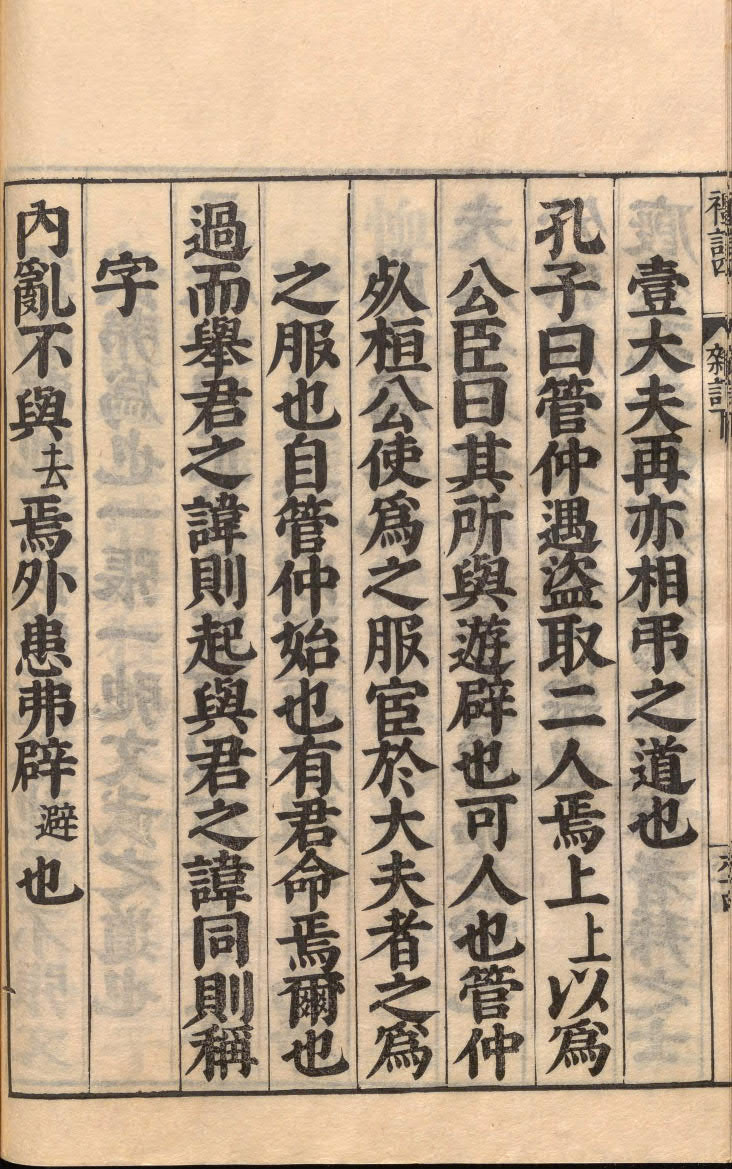 禮記四
雜記下
壹大夫再亦相弔之道也
孔子曰管仲遇盜取二人焉上上以爲
公臣曰其所與遊辟也可人也管仲
死桓公使爲之服宦於大夫者之爲
之服也自管仲始也有君命焉爾也
過而舉君之諱則起與君之諱同則稱
字
內亂不與去焉外患弗辟避也